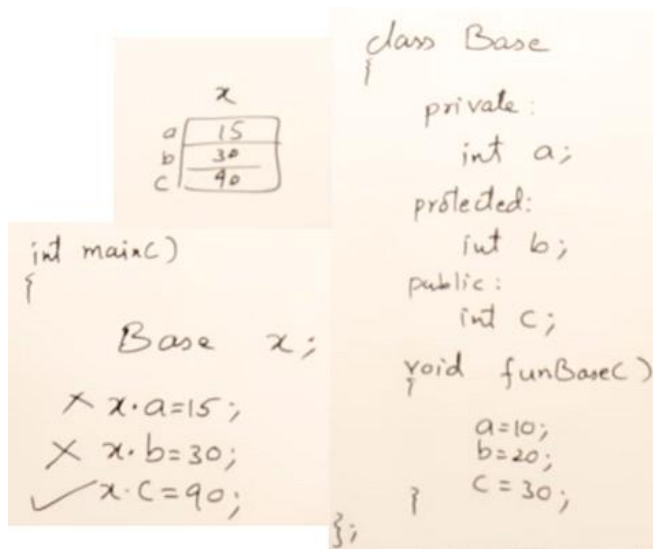 x
a 15
b 30
c 90
int main()
{
Base x;
✗ x.a=15;
✗ x.b=30;
✓ x.c=90;
class Base
{
private:
int a;
protected:
int b;
public:
int c;
void funBase()
{
a=10;
b=20;
c=30;
}
};